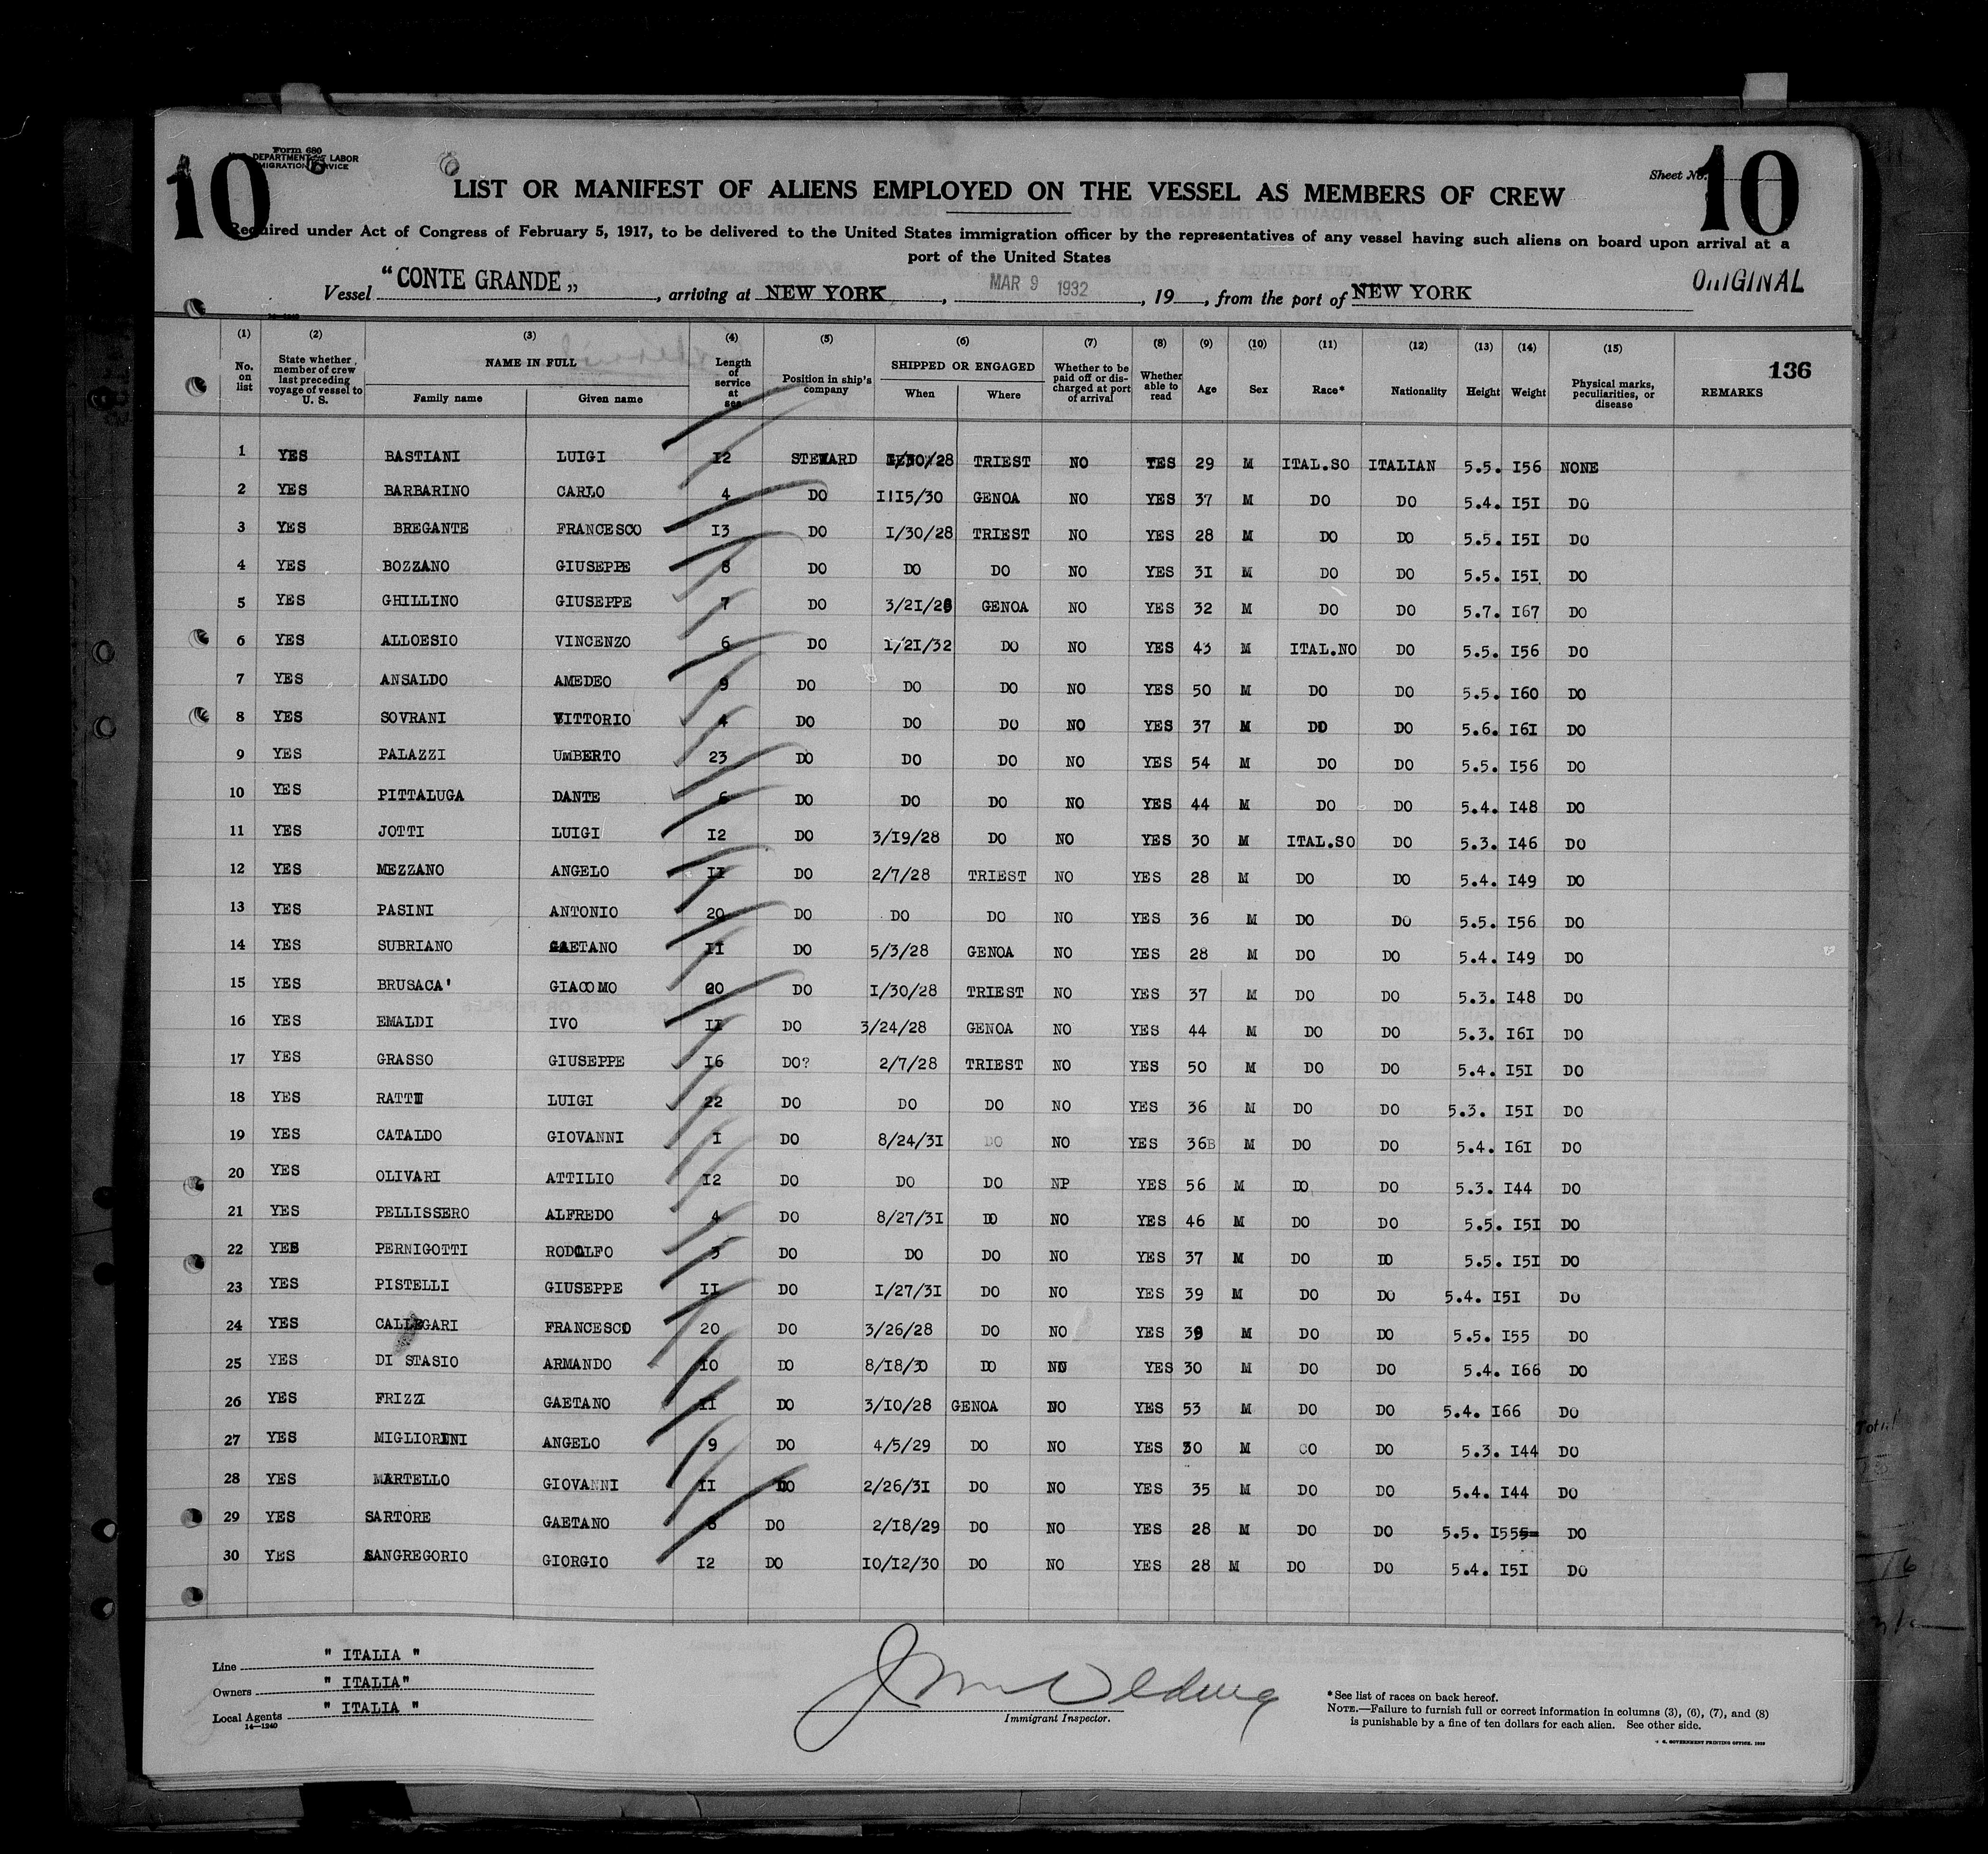 10
Form 680
DEPARTMENT OF LABOR
IMMIGRATION SERVICE
Sheet No. 10
LIST OR MANIFEST OF ALIENS EMPLOYED ON THE VESSEL AS MEMBERS OF CREW
Required under Act of Congress of February 5, 1917, to be delivered to the United States immigration officer by the representatives of any vessel having such aliens on board upon arrival at a
port of the United States
ORIGINAL
Vessel "CONTE GRANDE„ , arriving at NEW YORK , MAR 9 1932 , 19 , from the port of NEW YORK
14—1240
(1) (2) (3) (4) (5) (6) (7) (8) (9) (10) (11) (12) (13) (14) (15)
No. on list State whether member of crew last preceding voyage of vessel to U. S. NAME IN FULL Family name Given name Length of service at sea Position in ship's company SHIPPED OR ENGAGED When Where Whether to be paid off or discharged at port of arrival Whether able to read Age Sex Race* Nationality Height Weight Physical marks, peculiarities, or disease REMARKS 136
1 YES BASTIANI LUIGI I2 STEWARD /30/28 TRIEST NO YES 29 M ITAL.SO ITALIAN 5.5. I56 NONE
2 YES BARBARINO CARLO 4 DO I!I5/30 GENOA NO YES 37 M DO DO 5.4. I5I DO
3 YES BREGANTE FRANCESCO I3 DO I/30/28 TRIEST NO YES 28 M DO DO 5.5. I5I DO
4 YES BOZZANO GIUSEPPE 8 DO DO DO NO YES 3I M DO DO 5.5. I5I DO
5 YES GHILLINO GIUSEPPE 7 DO 3/2I/28 GENOA NO YES 32 M DO DO 5.7. I67 DO
6 YES ALLOESIO VINCENZO 6 DO 1/21/32 DO NO YES 43 M ITAL.NO DO 5.5. I56 DO
7 YES ANSALDO AMEDEO 9 DO DO DO NO YES 50 M DO DO 5.5. I60 DO
8 YES SOVRANI VITTORIO 4 DO DO DO NO YES 37 M DO DO 5.6. I6I DO
9 YES PALAZZI UmBERTO 23 DO DO DO NO YES 54 M DO DO 5.5. I56 DO
10 YES PITTALUGA DANTE 6 DO DO DO NO YES 44 M DO DO 5.4. I48 DO
11 YES JOTTI LUIGI I2 DO 3/I9/28 DO NO YES 30 M ITAL.SO DO 5.3. I46 DO
12 YES MEZZANO ANGELO II DO 2/7/28 TRIEST NO YES 28 M DO DO 5.4. I49 DO
13 YES PASINI ANTONIO 20 DO DO DO NO YES 36 M DO DO 5.5. I56 DO
14 YES SUBRIANO GAETANO II DO 5/3/28 GENOA NO YES 28 M DO DO 5.4. I49 DO
15 YES BRUSACA' GIACOMO 20 DO I/30/28 TRIEST NO YES 37 M DO DO 5.3. I48 DO
16 YES EMALDI IVO II DO 3/24/28 GENOA NO YES 44 M DO DO 5.3. I6I DO
17 YES GRASSO GIUSEPPE I6 DO? 2/7/28 TRIEST NO YES 50 M DO DO 5.4. I5I DO
18 YES RATTI LUIGI 22 DO DO DO NO YES 36 M DO DO 5.3. I5I DO
19 YES CATALDO GIOVANNI I DO 8/24/3I DO NO YES 36B M DO DO 5.4. I6I DO
20 YES OLIVARI ATTILIO I2 DO DO DO NP YES 56 M DO DO 5.3. I44 DO
21 YES PELLISSERO ALFREDO 4 DO 8/27/3I DO NO YES 46 M DO DO 5.5. I5I DO
22 YES PERNIGOTTI RODOLFO 3 DO DO DO NO YES 37 M DO DO 5.5. I5I DO
23 YES PISTELLI GIUSEPPE II DO I/27/3I DO NO YES 39 M DO DO 5.4. I5I DO
24 YES CALLEGARI FRANCESCO 20 DO 3/26/28 DO NO YES 39 M DO DO 5.5. I55 DO
25 YES DI STASIO ARMANDO IO DO 8/I8/30 DO NO YES 30 M DO DO 5.4. I66 DO
26 YES FRIZZI GAETANO II DO 3/I0/28 GENOA NO YES 53 M DO DO 5.4. I66 DO
27 YES MIGLIORINI ANGELO 9 DO 4/5/29 DO NO YES 30 M CO DO 5.3. I44 DO
28 YES MARTELLO GIOVANNI II DO 2/26/3I DO NO YES 35 M DO DO 5.4. I44 DO
29 YES SARTORE GAETANO 8 DO 2/I8/29 DO NO YES 28 M DO DO 5.5. I555 DO
30 YES SANGREGORIO GIORGIO I2 DO IO/I2/30 DO NO YES 28 M DO DO 5.4. I5I DO
Line " ITALIA "
Owners " ITALIA"
Local Agents " ITALIA "
14—1240
Immigrant Inspector.
*See list of races on back hereof.
NOTE.—Failure to furnish full or correct information in columns (3), (6), (7), and (8)
is punishable by a fine of ten dollars for each alien. See other side.
GOVERNMENT PRINTING OFFICE: 1929